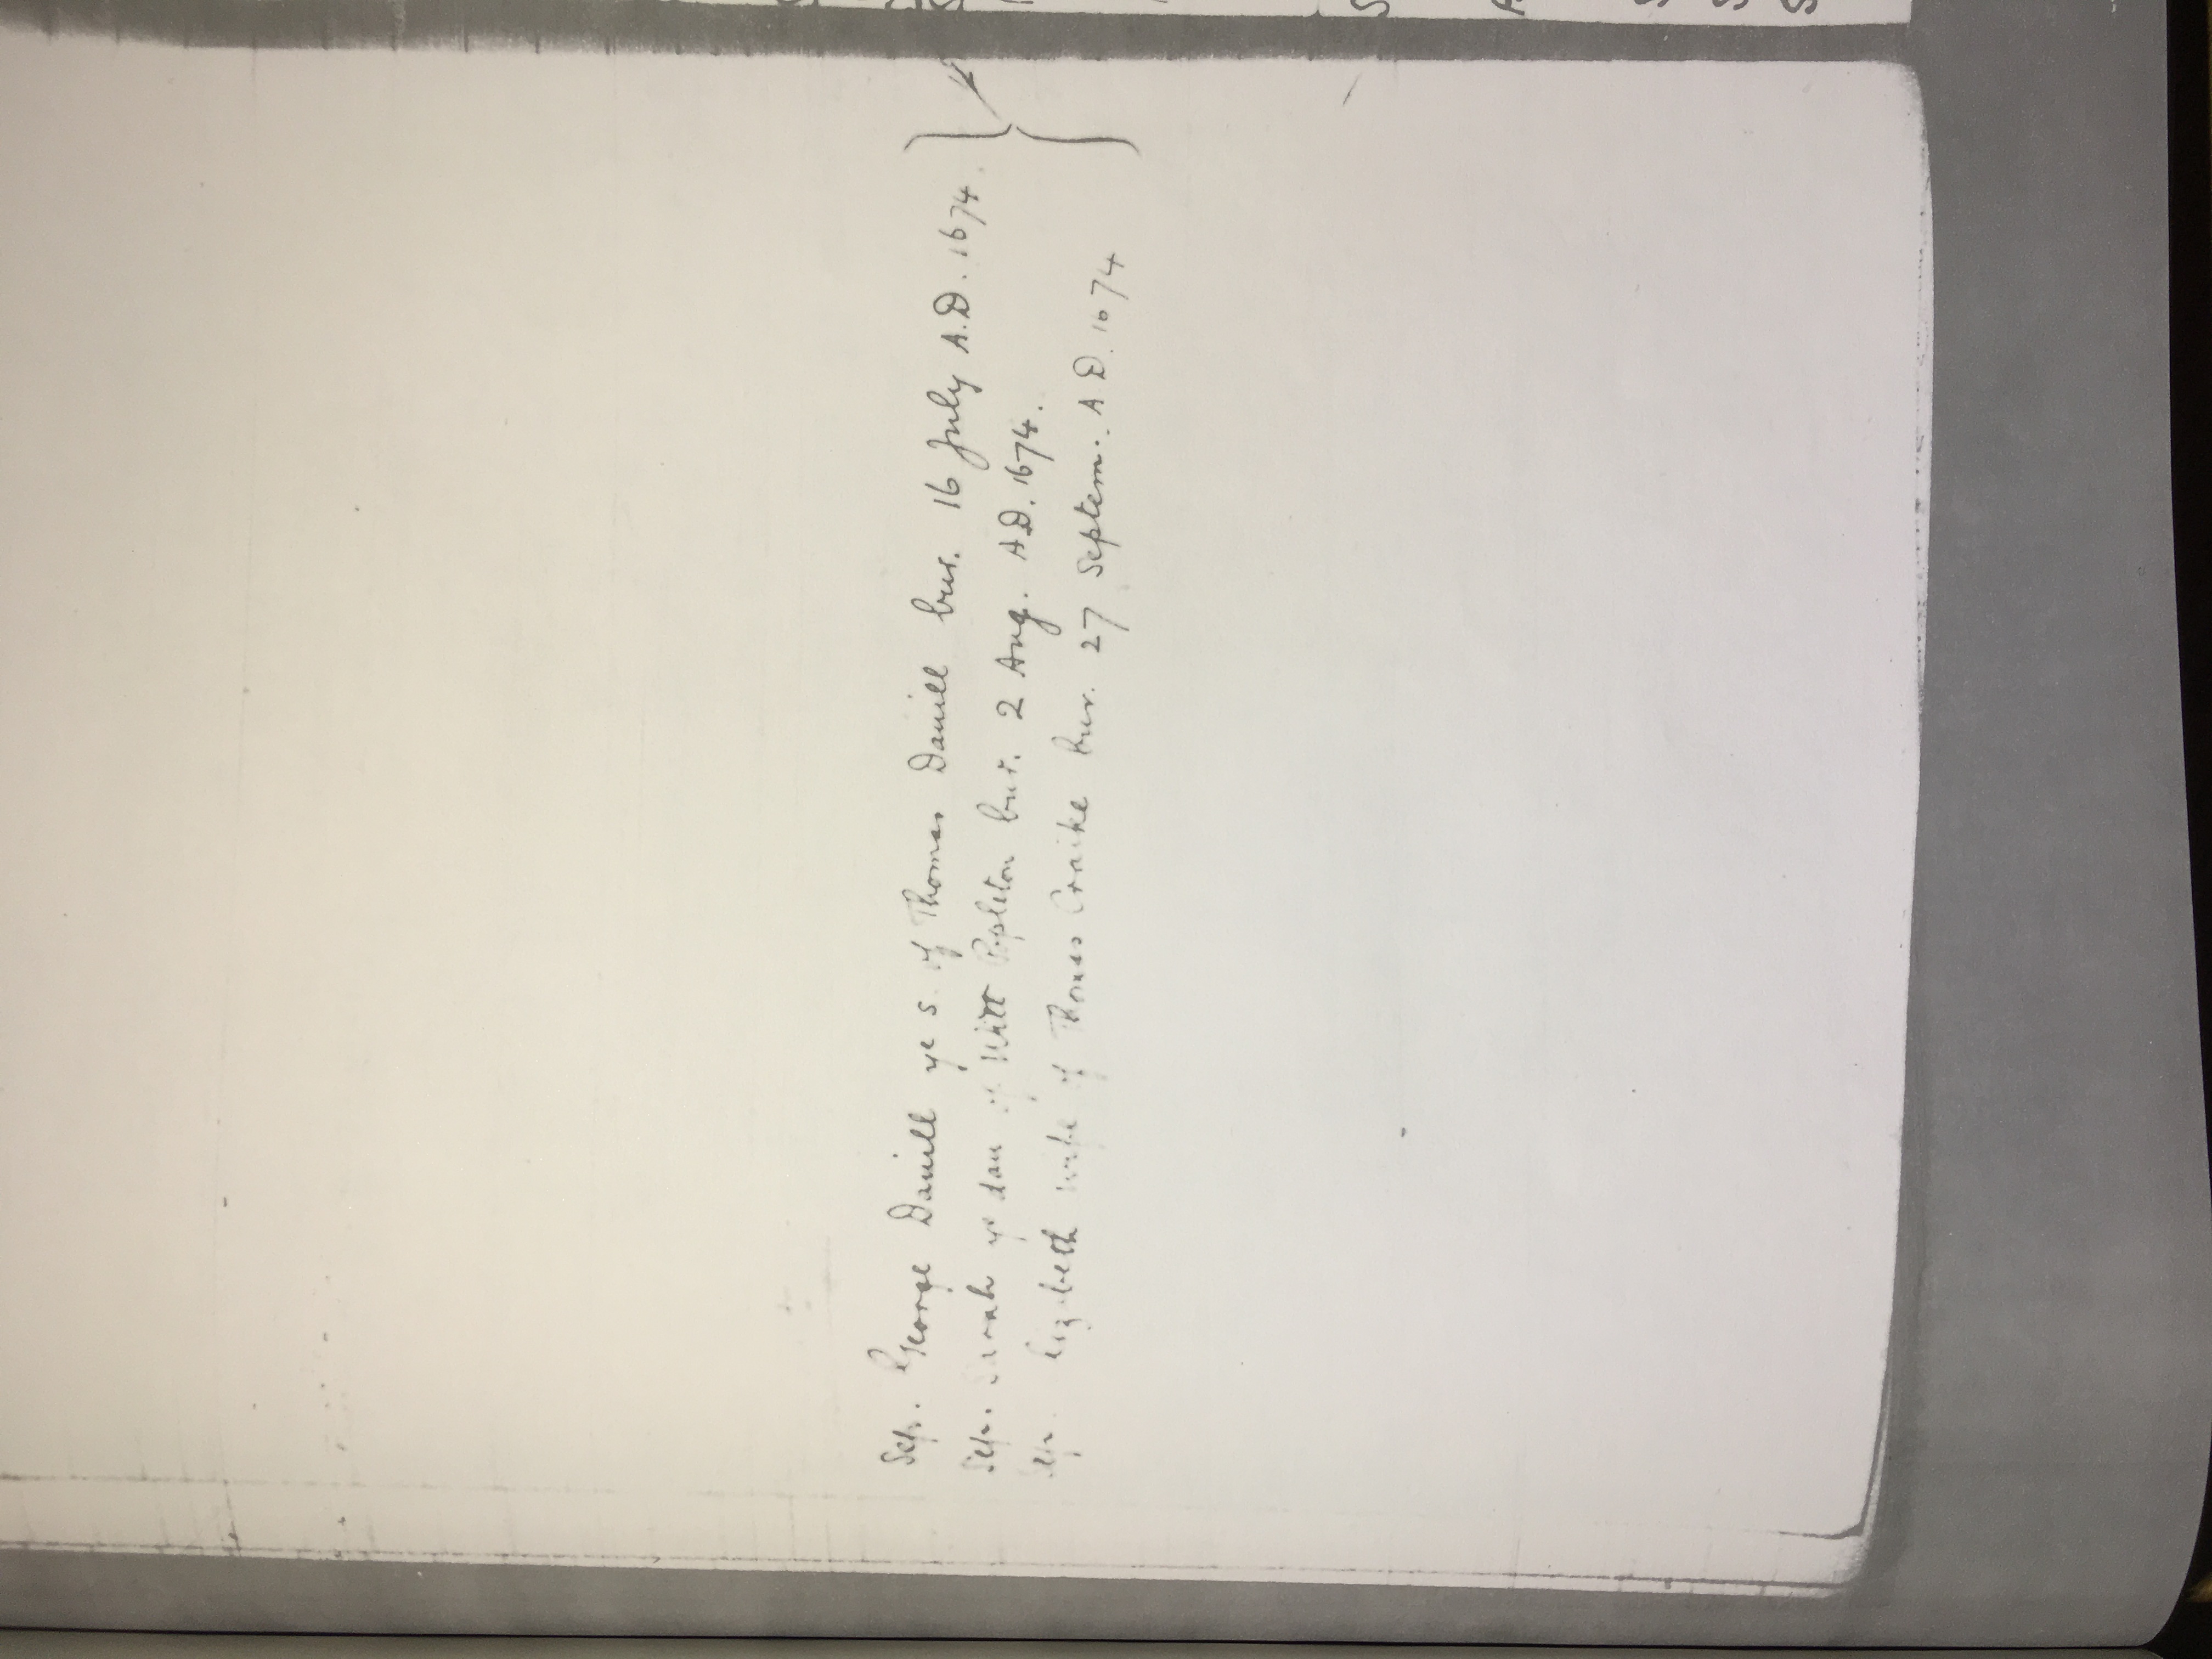 Sep. George Daniell ye s. of Thomas Daniell bur. 16 July A.D. 1674.
Sep. Sarah ye dau of Will Popleton bur. 2 Aug. A.D. 1674.
Sep. Elizabeth wife of Thomas Craike bur. 27 Septem. A.D. 1674